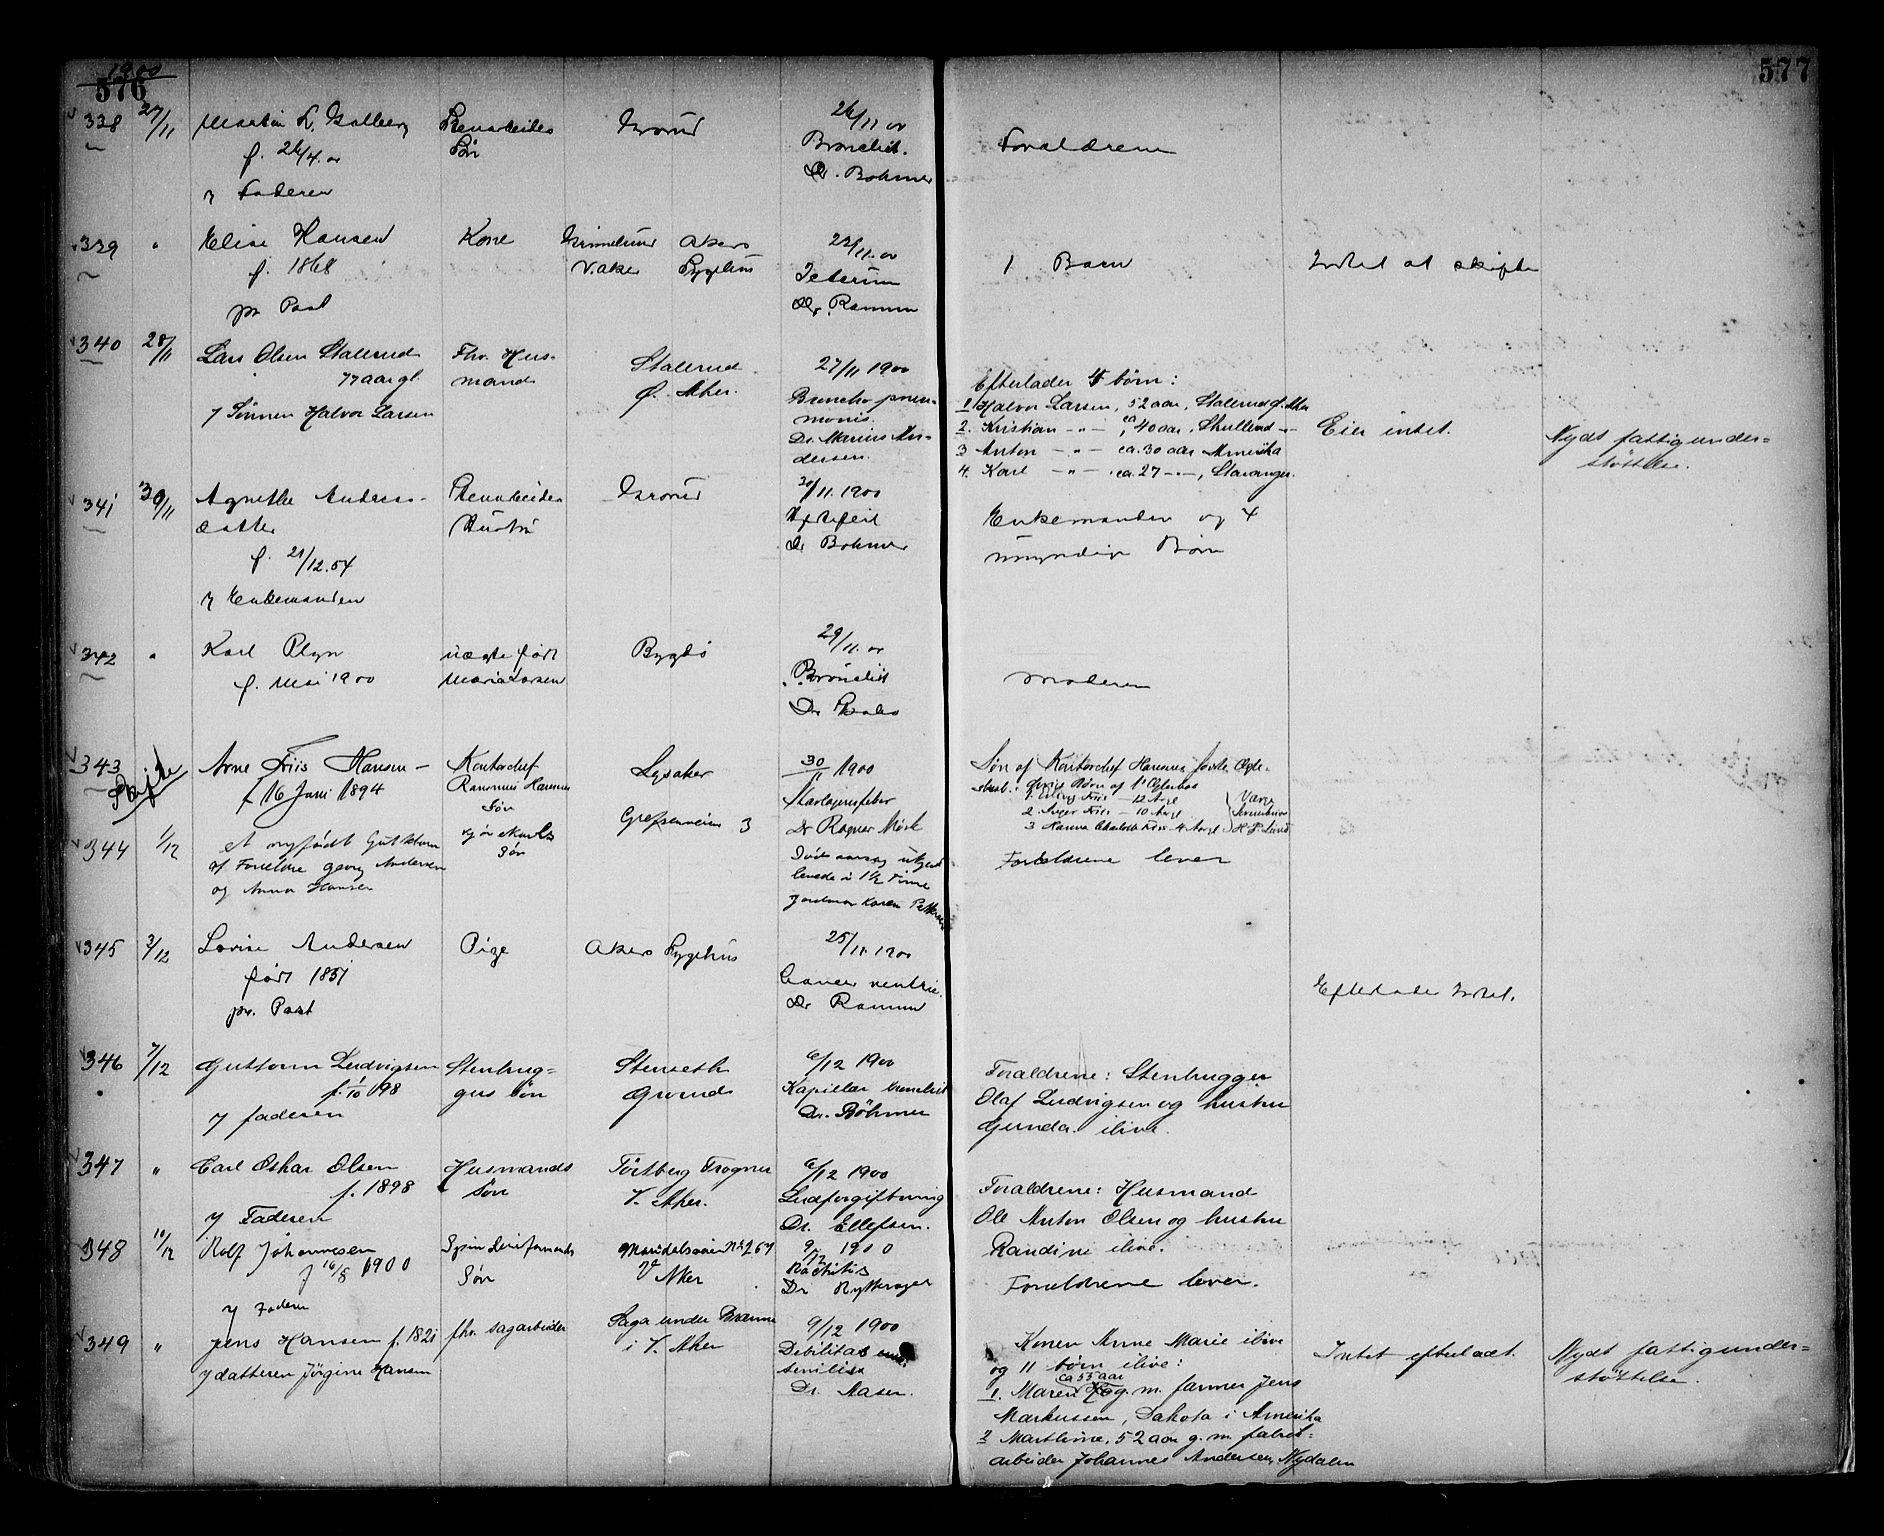 1900
576
577
338 27/11 Martin L. f. 26/4.00 Faderen
Stenarbeider Søn
Grorud
26/11 00 Bronchit. Dr. Bohmer
Forældrene
339 " Elise Hansen f. 1868 pr Post
Kone
V. Aker
Akers Sygehus
22/11.00 Icterus Dr.
1 Barn
Intet at skifte
340 28/11 Lars Olsen Stallerud 77 aar gl. / Sønnen Halvor Larsen
Fhv. Husmand
Stallerud Ø. Aker.
27/11 1900
Broncho pneumonis.
Dr. Marius Andersen.
Efterlader 4 børn:
1. Halvor Larsen, 52 aar, Stallerud Ø. Aker
2. Kristian - " - ca 40 aar, Skullerud - " -
3 Anton - " - ca. 30 aar Amerika
4. Karl - " - ca. 27 - " -, Stavanger.
Eier intet.
Nydt fattigunder=
støttelse.
341 30/11 Agnethe Andersdatter
f. 21/12.54
Enkemanden
Stenarbeider Hustru
Grorud
11.1900
Dr Bohmer
Enkemanden og 4
umyndige Børn
342 " Karl
f. Mai 1900
uægte født
Maria Larsen
Bygdø
29/11.00
Bronchit
Dr
Moderen
343 Skifte
Arne Friis Hansen -
f 16 Juni 1894
Kontorchef
Rasmus Hansens
Søn
Lysaker
30/11 1900
Skarlagensfeber
Dr Ragnar Mørk
Søn af Kontorchef Hansens første Ægte-
skab: øvrige Børn af 1ste Ægteskab
1. Friis - 12 Aar
2. Friis - 10 Aar
3 Hanna Charlotte Friis 4 Aar
H. P. Lund
344 1/12 et nyfødt Guttebarn
af Forældre Georg Andersen
og Anna Hansen
Søn
Grefsenveien 3
Døds aarsag
levede i 1½ Time
Jordmor Karen
Forældrene lever
345 3/12 Lovise Andersen
født 1851
pr. Post
Pige
Akers Sygehus
25/11 1900
Cancer ventric.
Dr
Efterlader Intet.
346 7/12 Guttorm Ludvigsen
f. 1/10 98
/ faderen
Stenhug=
gers Søn
Stenseth
Grorud
6/12 1900
Kapillær bronchit
Dr. Böhmer
Forældrene: Stenhugger
Olaf Ludvigsen og hustru
Gunda. ilive.
347 " Carl Oskar Olsen
f. 1898
/ Faderen
Husmands
Søn
Tørtberg Frogner
V. Aker.
6/12 1900
Ludforgiftning
Dr. Ellefsen.
Forældrene: Husmand
Ole Anton Olsen og hustru
Randine ilive.
348 10/12 Rolf Johannesen
f 16/8 1900
/ Faderen
Søn
Maridalsveien No 267
V Aker
9/12 1900
Rachitis
Dr Rytterager
Forældrene lever.
349 " Jens Hansen f. 1821
/ datteren Jørgine Hansen
fhv. sagarbeider
Saga under Brænne
i V. Aker
9/12 1900
Debilitas
senilis
Dr. Aaser.
Konen Anne Marie ilive
og 11 børn ilive:
ca 55 aar
1. Maren g. m. farmer Jens
Markussen, Dakota i Amerika
2 Marthine, 52 aar g. m. fabrik=
arbeider Johannes Andersen, Nydalen
Intet efterladt.
Nydt fattigunder=
støttelse.